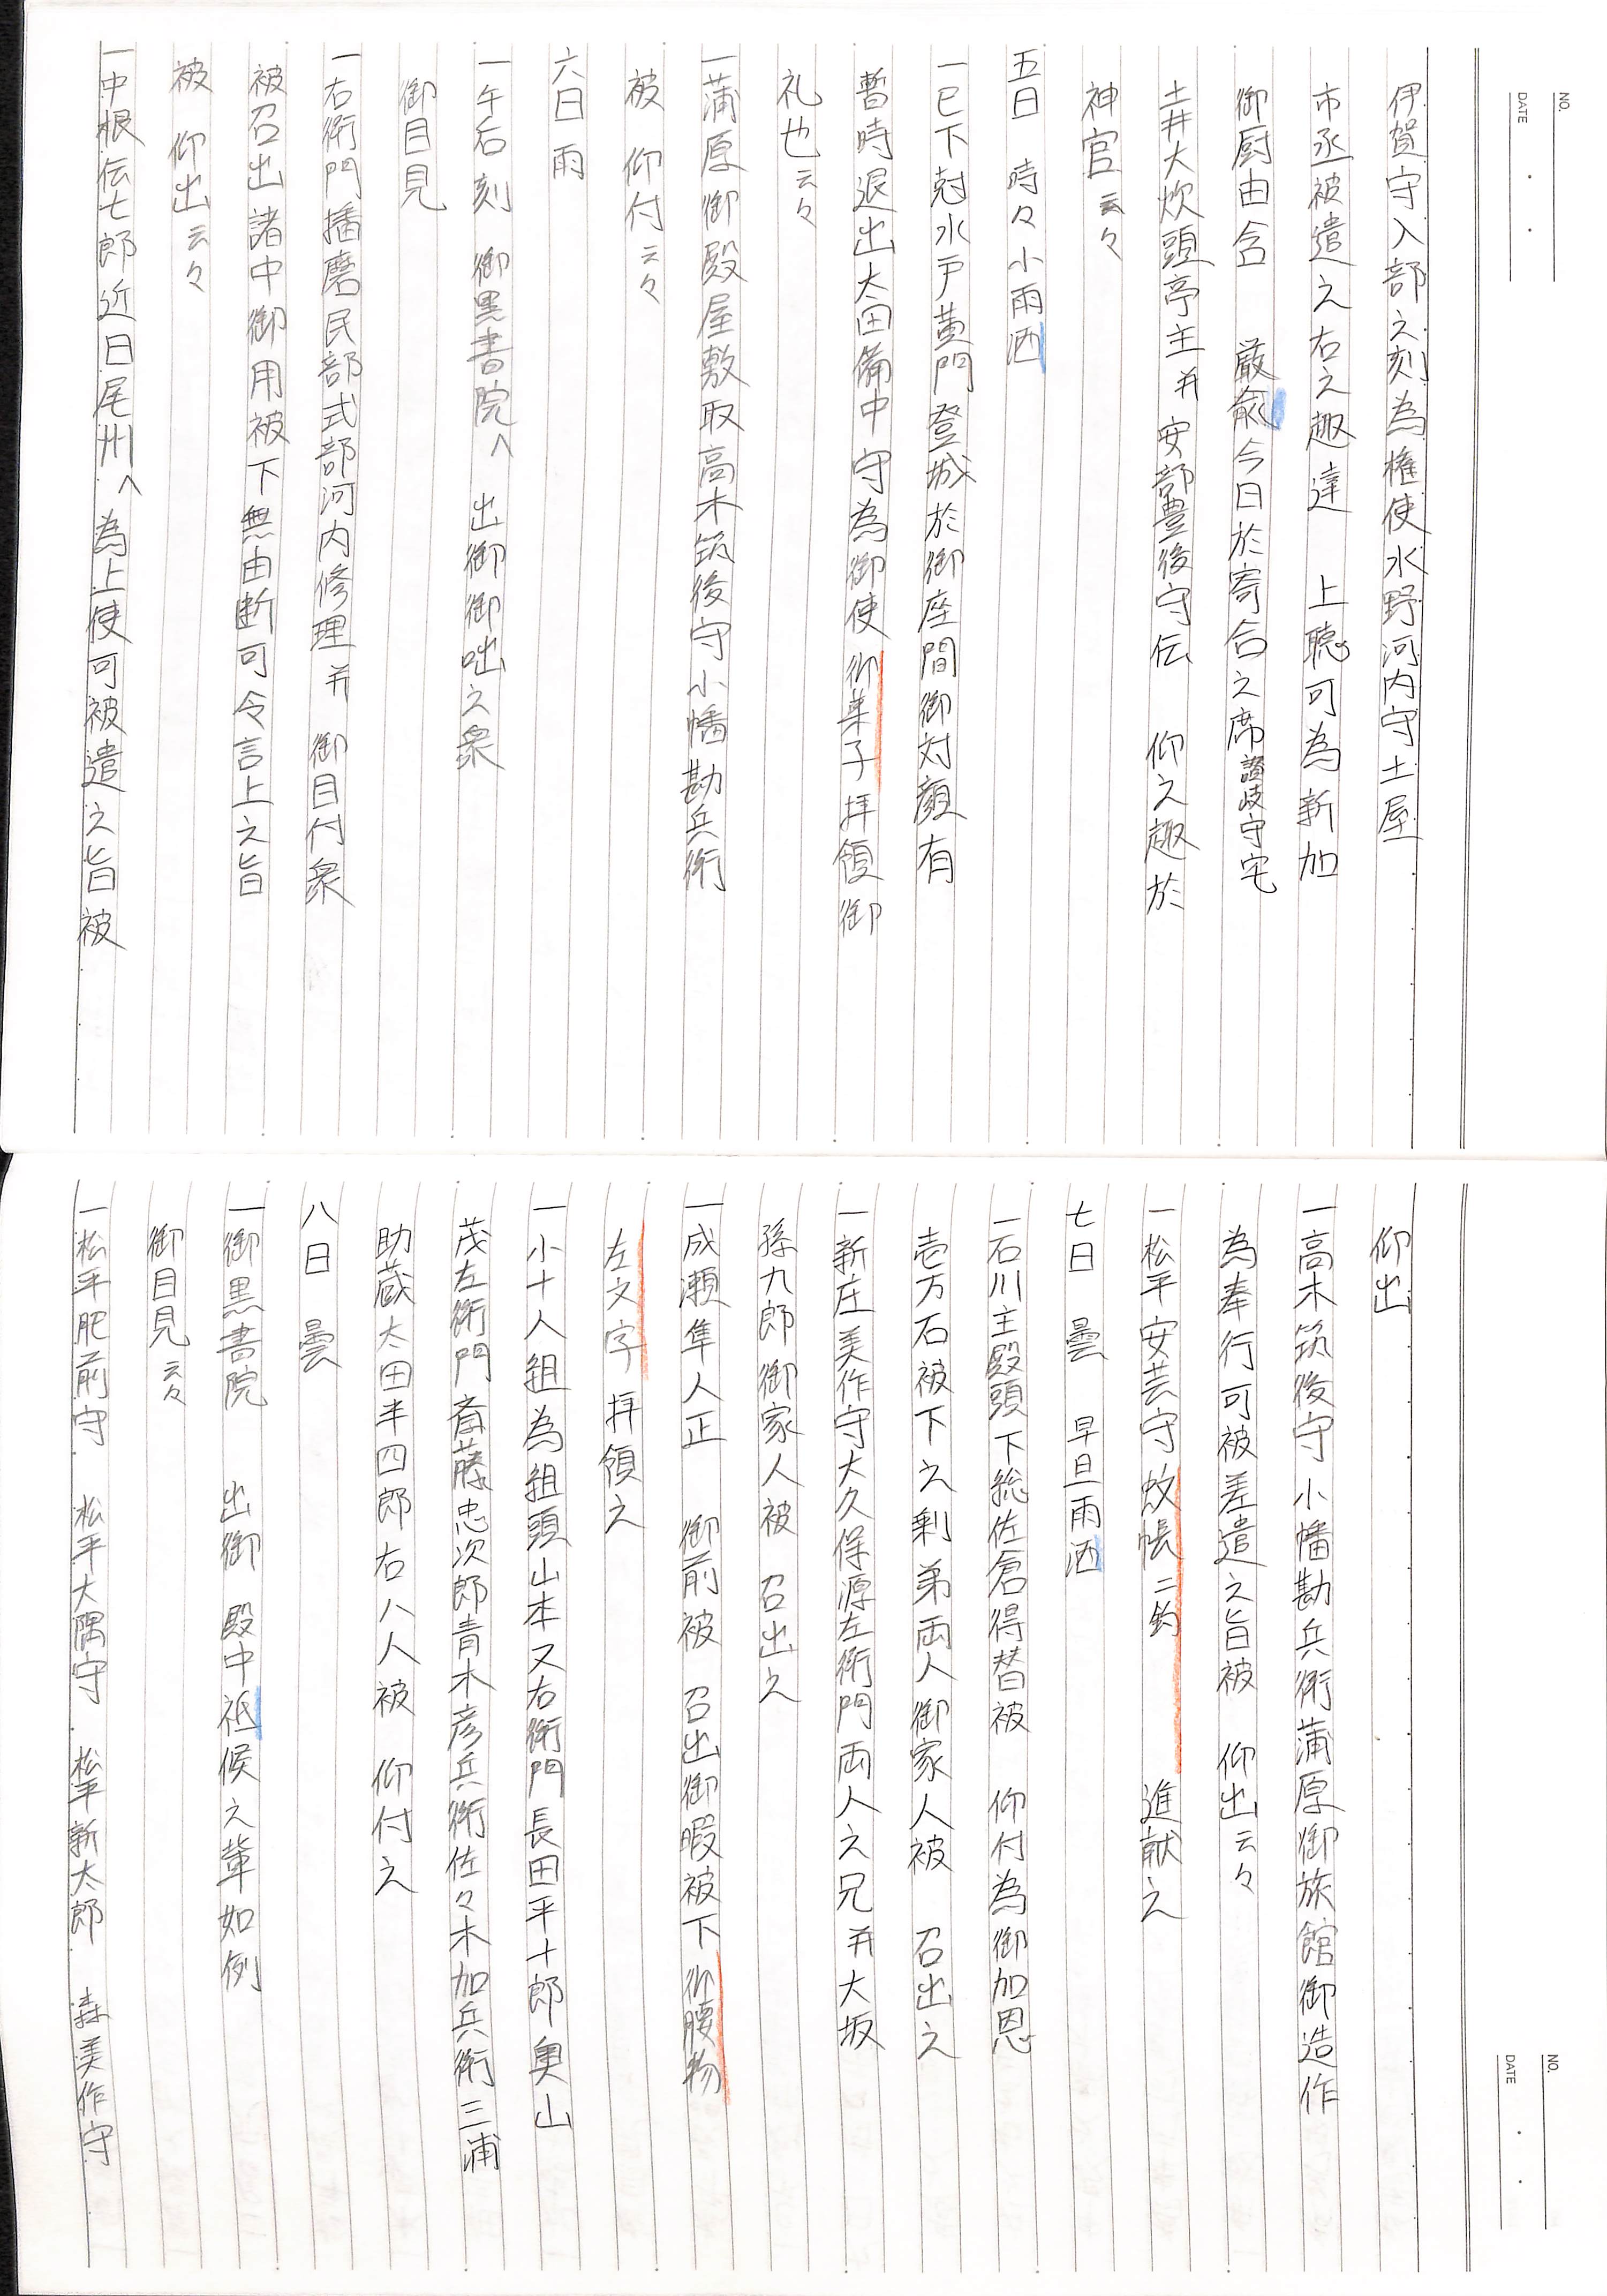 NO.
DATE
伊賀守入部之刻為権使水野河内守土屋
市丞被遣之右之趣達　上聴可為新加
御厨由含　厳兪今日於寄合之席讃岐守宅
土井大炊頭亭主并安部豊後守伝　仰之趣於
神宮云々
五日　時々小雨洒
一巳下尅水戸黄門登城於御座間御対顔有
暫時退出太田備中守為御使御菓子拝領御
礼也云々
一蒲原御殿屋敷取高木筑後守小幡勘兵衛
被　仰付云々
六日雨
一午后刻　御黒書院へ　出御御咄之衆
御目見
一右衛門播磨民部式部河内修理并　御目付衆
被召出諸中御用被下無由断可令言上之旨
被　仰出云々
一中根伝七郎近日尾州へ為上使可被遣之旨被
NO.
DATE
仰出
一高木筑後守小幡勘兵衛蒲原御旅館御造作
為奉行可被差遣之旨被　仰出云々
一松平安芸守蚊帳二釣　進献之
七日　曇　早旦雨洒
一石川主殿頭下総佐倉得替被　仰付為御加恩
壱万石被下之剰弟両人御家人被　召出之
一新庄美作守大久保源左衛門両人之兄并大坂
孫九郎御家人被　召出之
一成瀬隼人正　御前被　召出御暇被下御腰物
左文字拝領之
一小十人組為組頭山本又右衛門長田平十郎奥山
茂左衛門斎藤忠次郎青木彦兵衛佐々木加兵衛三浦
助蔵太田半四郎右八人被　仰付之
八日　曇
一御黒書院　出御　殿中祗候之輩如例
御目見云々
一松平肥前守　松平大隅守　松平新太郎　森美作守